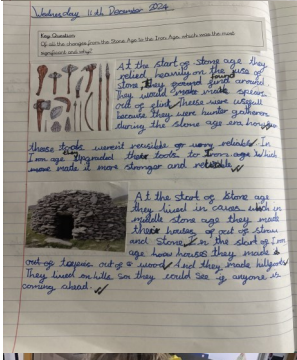 Wednesday 11th December 2024
Key Question:
Of all the changes from the Stone Age to the Iron Age, which were the most
significant and why?
At the start of stone age they
relied heavily on the use of
stone they found around
They would make spears
out of flint. These were usefull
because they were hunter gatherers
during the stone age
those tools weren't reusable or very reliable. In
Iron age upgraded their tools to Iron age which
made it more stronger and
At the start of Stone age
they lived in caves which in
middle stone age they made
their houses out of straw
and Stone. In the start of Iron
age houses they made
out of out of wood And they made hillforts
They lived on hills so they could see if anyone is
coming ahead.